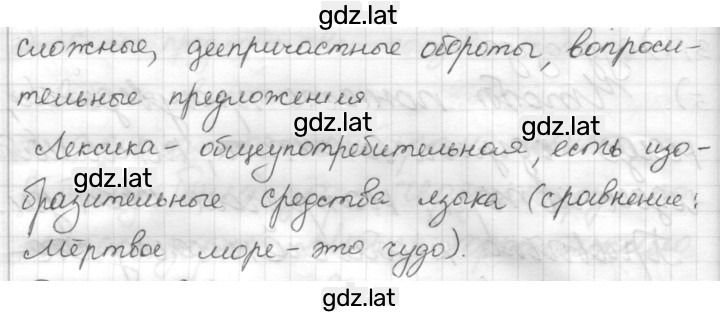 gdz.lat
сложные, деепричастные обороты, вопроси-
тельные предложения
gdz.lat
gdz.lat
Лексика - общеупотребительная, есть изо-
gdz.lat
бразительные средства языка (сравнение:
Мёртвое море - это чудо).
gdz.lat